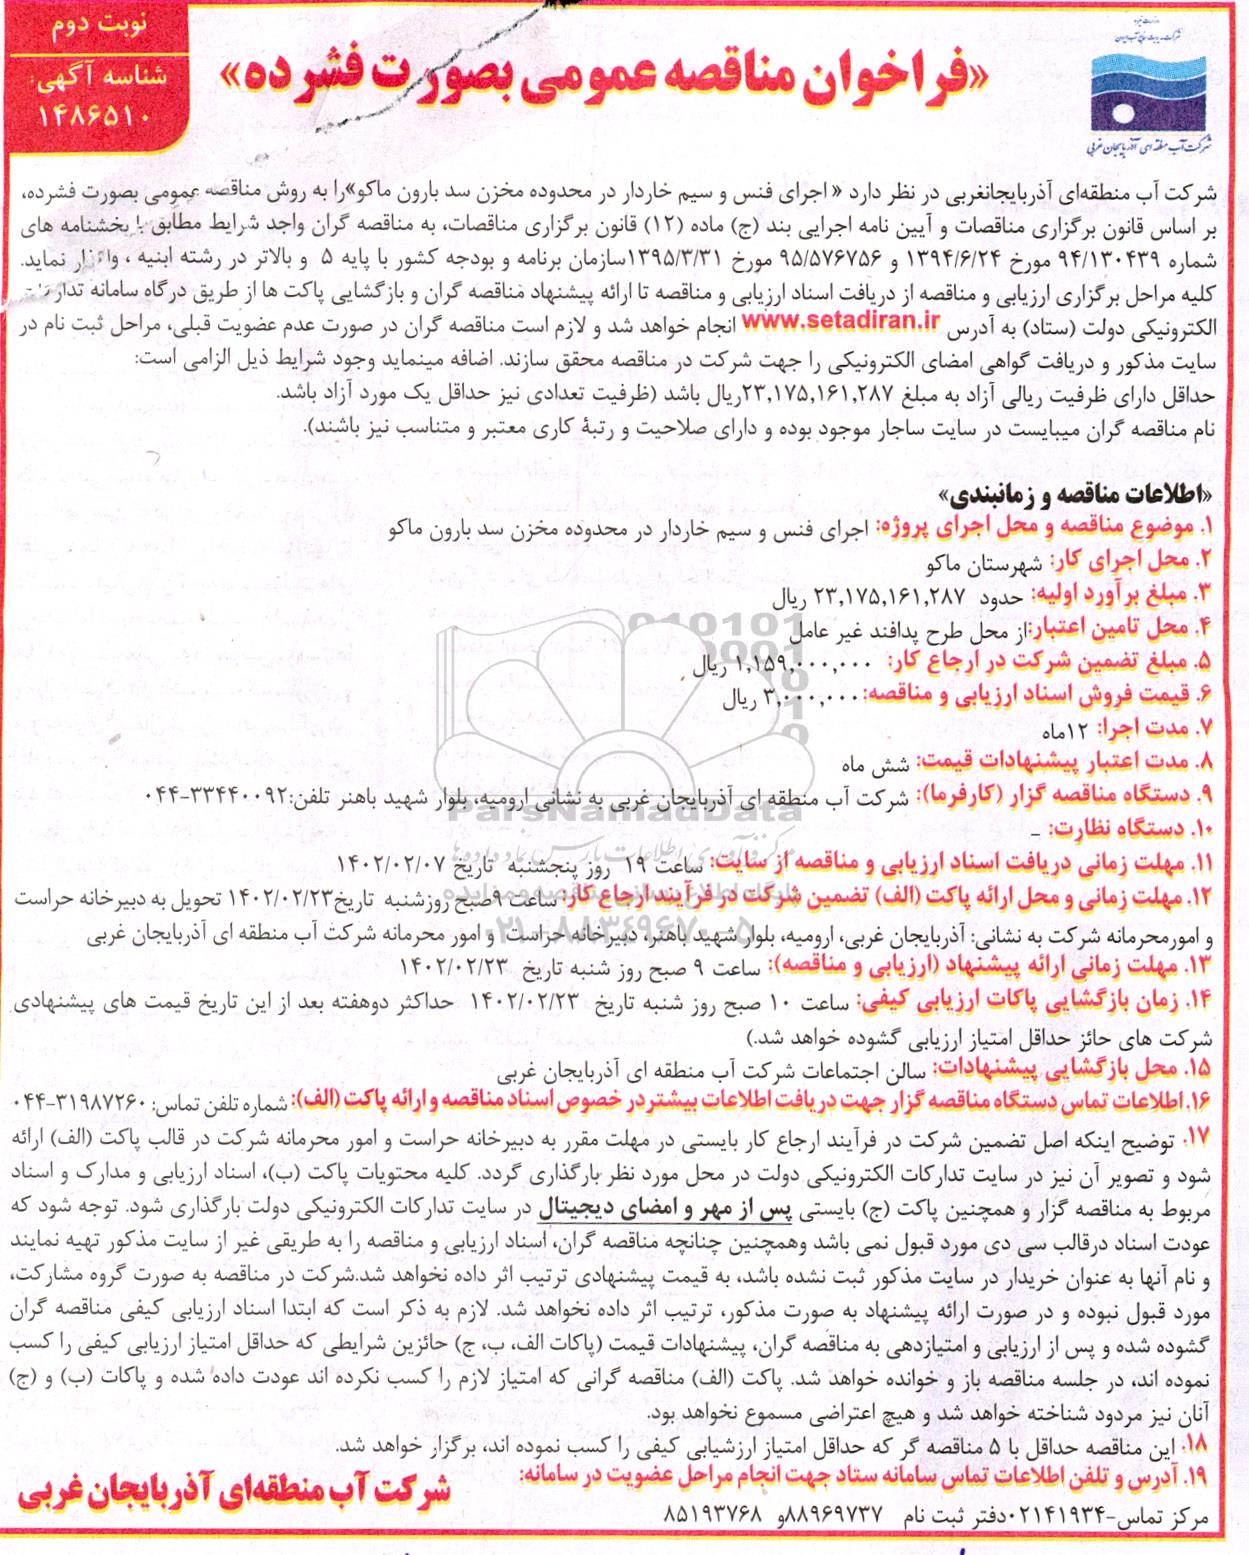 نوبت دوم
شناسه آگهی:
۱۴۸۶۵۱۰
وزارت نیرو
شرکت مدیریت منابع آب ایران
شرکت آب منطقه ای آذربایجان غربی
«فراخوان مناقصه عمومی بصورت فشرده»
شرکت آب منطقه‌ای آذربایجانغربی در نظر دارد « اجرای فنس و سیم خاردار در محدوده مخزن سد بارون ماکو»را به روش مناقصه عمومی بصورت فشرده،
بر اساس قانون برگزاری مناقصات و آیین نامه اجرایی بند (ج) ماده (۱۲) قانون برگزاری مناقصات، به مناقصه گران واجد شرایط مطابق با بخشنامه های
شماره ۹۴/۱۳۰۴۳۹ مورخ ۱۳۹۴/۶/۲۴ و ۹۵/۵۷۶۷۵۶ مورخ ۱۳۹۵/۳/۳۱سازمان برنامه و بودجه کشور با پایه ۵ و بالاتر در رشته ابنیه ، واگذار نماید.
کلیه مراحل برگزاری ارزیابی و مناقصه از دریافت اسناد ارزیابی و مناقصه تا ارائه پیشنهاد مناقصه گران و بازگشایی پاکت ها از طریق درگاه سامانه تدارکات
الکترونیکی دولت (ستاد) به آدرس www.setadiran.ir انجام خواهد شد و لازم است مناقصه گران در صورت عدم عضویت قبلی، مراحل ثبت نام در
سایت مذکور و دریافت گواهی امضای الکترونیکی را جهت شرکت در مناقصه محقق سازند. اضافه مینماید وجود شرایط ذیل الزامی است:
حداقل دارای ظرفیت ریالی آزاد به مبلغ ۲۳,۱۷۵,۱۶۱,۲۸۷ریال باشد (ظرفیت تعدادی نیز حداقل یک مورد آزاد باشد.
نام مناقصه گران میبایست در سایت ساجار موجود بوده و دارای صلاحیت و رتبۀ کاری معتبر و متناسب نیز باشند).
«اطلاعات مناقصه و زمانبندی»
۱. موضوع مناقصه و محل اجرای پروژه: اجرای فنس و سیم خاردار در محدوده مخزن سد بارون ماکو
۲. محل اجرای کار: شهرستان ماکو
۳. مبلغ برآورد اولیه: حدود ۲۳,۱۷۵,۱۶۱,۲۸۷ ریال
۴. محل تامین اعتبار:از محل طرح پدافند غیر عامل
۵. مبلغ تضمین شرکت در ارجاع کار: ۱,۱۵۹,۰۰۰,۰۰۰ ریال
۶. قیمت فروش اسناد ارزیابی و مناقصه:۳,۰۰۰,۰۰۰ ریال
۷. مدت اجرا: ۱۲ماه
۸. مدت اعتبار پیشنهادات قیمت: شش ماه
۹. دستگاه مناقصه گزار (کارفرما): شرکت آب منطقه ای آذربایجان غربی به نشانی ارومیه، بلوار شهید باهنر تلفن:۳۳۴۴۰۰۹۲-۰۴۴
ParsNamadData
۱۰. دستگاه نظارت: _
مرکز فرآوری اطلاعات پارس نماد داده ها
۱۱. مهلت زمانی دریافت اسناد ارزیابی و مناقصه از سایت: ساعت ۱۹ روز پنجشنبه تاریخ ۱۴۰۲/۰۲/۰۷
۱۲. مهلت زمانی و محل ارائه پاکت (الف) تضمین شرکت در فرآیند ارجاع کار: ساعت ۹صبح روزشنبه تاریخ۱۴۰۲/۰۲/۲۳ تحویل به دبیرخانه حراست
و امورمحرمانه شرکت به نشانی: آذربایجان غربی، ارومیه، بلوار شهید باهنر، دبیرخانه حراست و امور محرمانه شرکت آب منطقه ای آذربایجان غربی
۰۲۱-۸۸۳۴۹۶۷۰-۵
۱۳. مهلت زمانی ارائه پیشنهاد (ارزیابی و مناقصه): ساعت ۹ صبح روز شنبه تاریخ ۱۴۰۲/۰۲/۲۳
۱۴. زمان بازگشایی پاکات ارزیابی کیفی: ساعت ۱۰ صبح روز شنبه تاریخ ۱۴۰۲/۰۲/۲۳ حداکثر دوهفته بعد از این تاریخ قیمت های پیشنهادی
شرکت های حائز حداقل امتیاز ارزیابی گشوده خواهد شد.)
۱۵. محل بازگشایی پیشنهادات: سالن اجتماعات شرکت آب منطقه ای آذربایجان غربی
۱۶.اطلاعات تماس دستگاه مناقصه گزار جهت دریافت اطلاعات بیشتردر خصوص اسناد مناقصه و ارائه پاکت (الف): شماره تلفن تماس: ۳۱۹۸۷۲۶۰-۰۴۴
۱۷. توضیح اینکه اصل تضمین شرکت در فرآیند ارجاع کار بایستی در مهلت مقرر به دبیرخانه حراست و امور محرمانه شرکت در قالب پاکت (الف) ارائه
شود و تصویر آن نیز در سایت تدارکات الکترونیکی دولت در محل مورد نظر بارگذاری گردد. کلیه محتویات پاکت (ب)، اسناد ارزیابی و مدارک و اسناد
مربوط به مناقصه گزار و همچنین پاکت (ج) بایستی پس از مهر و امضای دیجیتال در سایت تدارکات الکترونیکی دولت بارگذاری شود. توجه شود که
عودت اسناد درقالب سی دی مورد قبول نمی باشد وهمچنین چنانچه مناقصه گران، اسناد ارزیابی و مناقصه را به طریقی غیر از سایت مذکور تهیه نمایند
و نام آنها به عنوان خریدار در سایت مذکور ثبت نشده باشد، به قیمت پیشنهادی ترتیب اثر داده نخواهد شد.شرکت در مناقصه به صورت گروه مشارکت،
مورد قبول نبوده و در صورت ارائه پیشنهاد به صورت مذکور، ترتیب اثر داده نخواهد شد. لازم به ذکر است که ابتدا اسناد ارزیابی کیفی مناقصه گران
گشوده شده و پس از ارزیابی و امتیازدهی به مناقصه گران، پیشنهادات قیمت (پاکات الف، ب، ج) حائزین شرایطی که حداقل امتیاز ارزیابی کیفی را کسب
نموده اند، در جلسه مناقصه باز و خوانده خواهد شد. پاکت (الف) مناقصه گرانی که امتیاز لازم را کسب نکرده اند عودت داده شده و پاکات (ب) و (ج)
آنان نیز مردود شناخته خواهد شد و هیچ اعتراضی مسموع نخواهد بود.
۱۸. این مناقصه حداقل با ۵ مناقصه گر که حداقل امتیاز ارزشیابی کیفی را کسب نموده اند، برگزار خواهد شد.
۱۹. آدرس و تلفن اطلاعات تماس سامانه ستاد جهت انجام مراحل عضویت در سامانه:
مرکز تماس-۰۲۱۴۱۹۳۴دفتر ثبت نام ۸۸۹۶۹۷۳۷و ۸۵۱۹۳۷۶۸
شرکت آب منطقه‌ای آذربایجان غربی